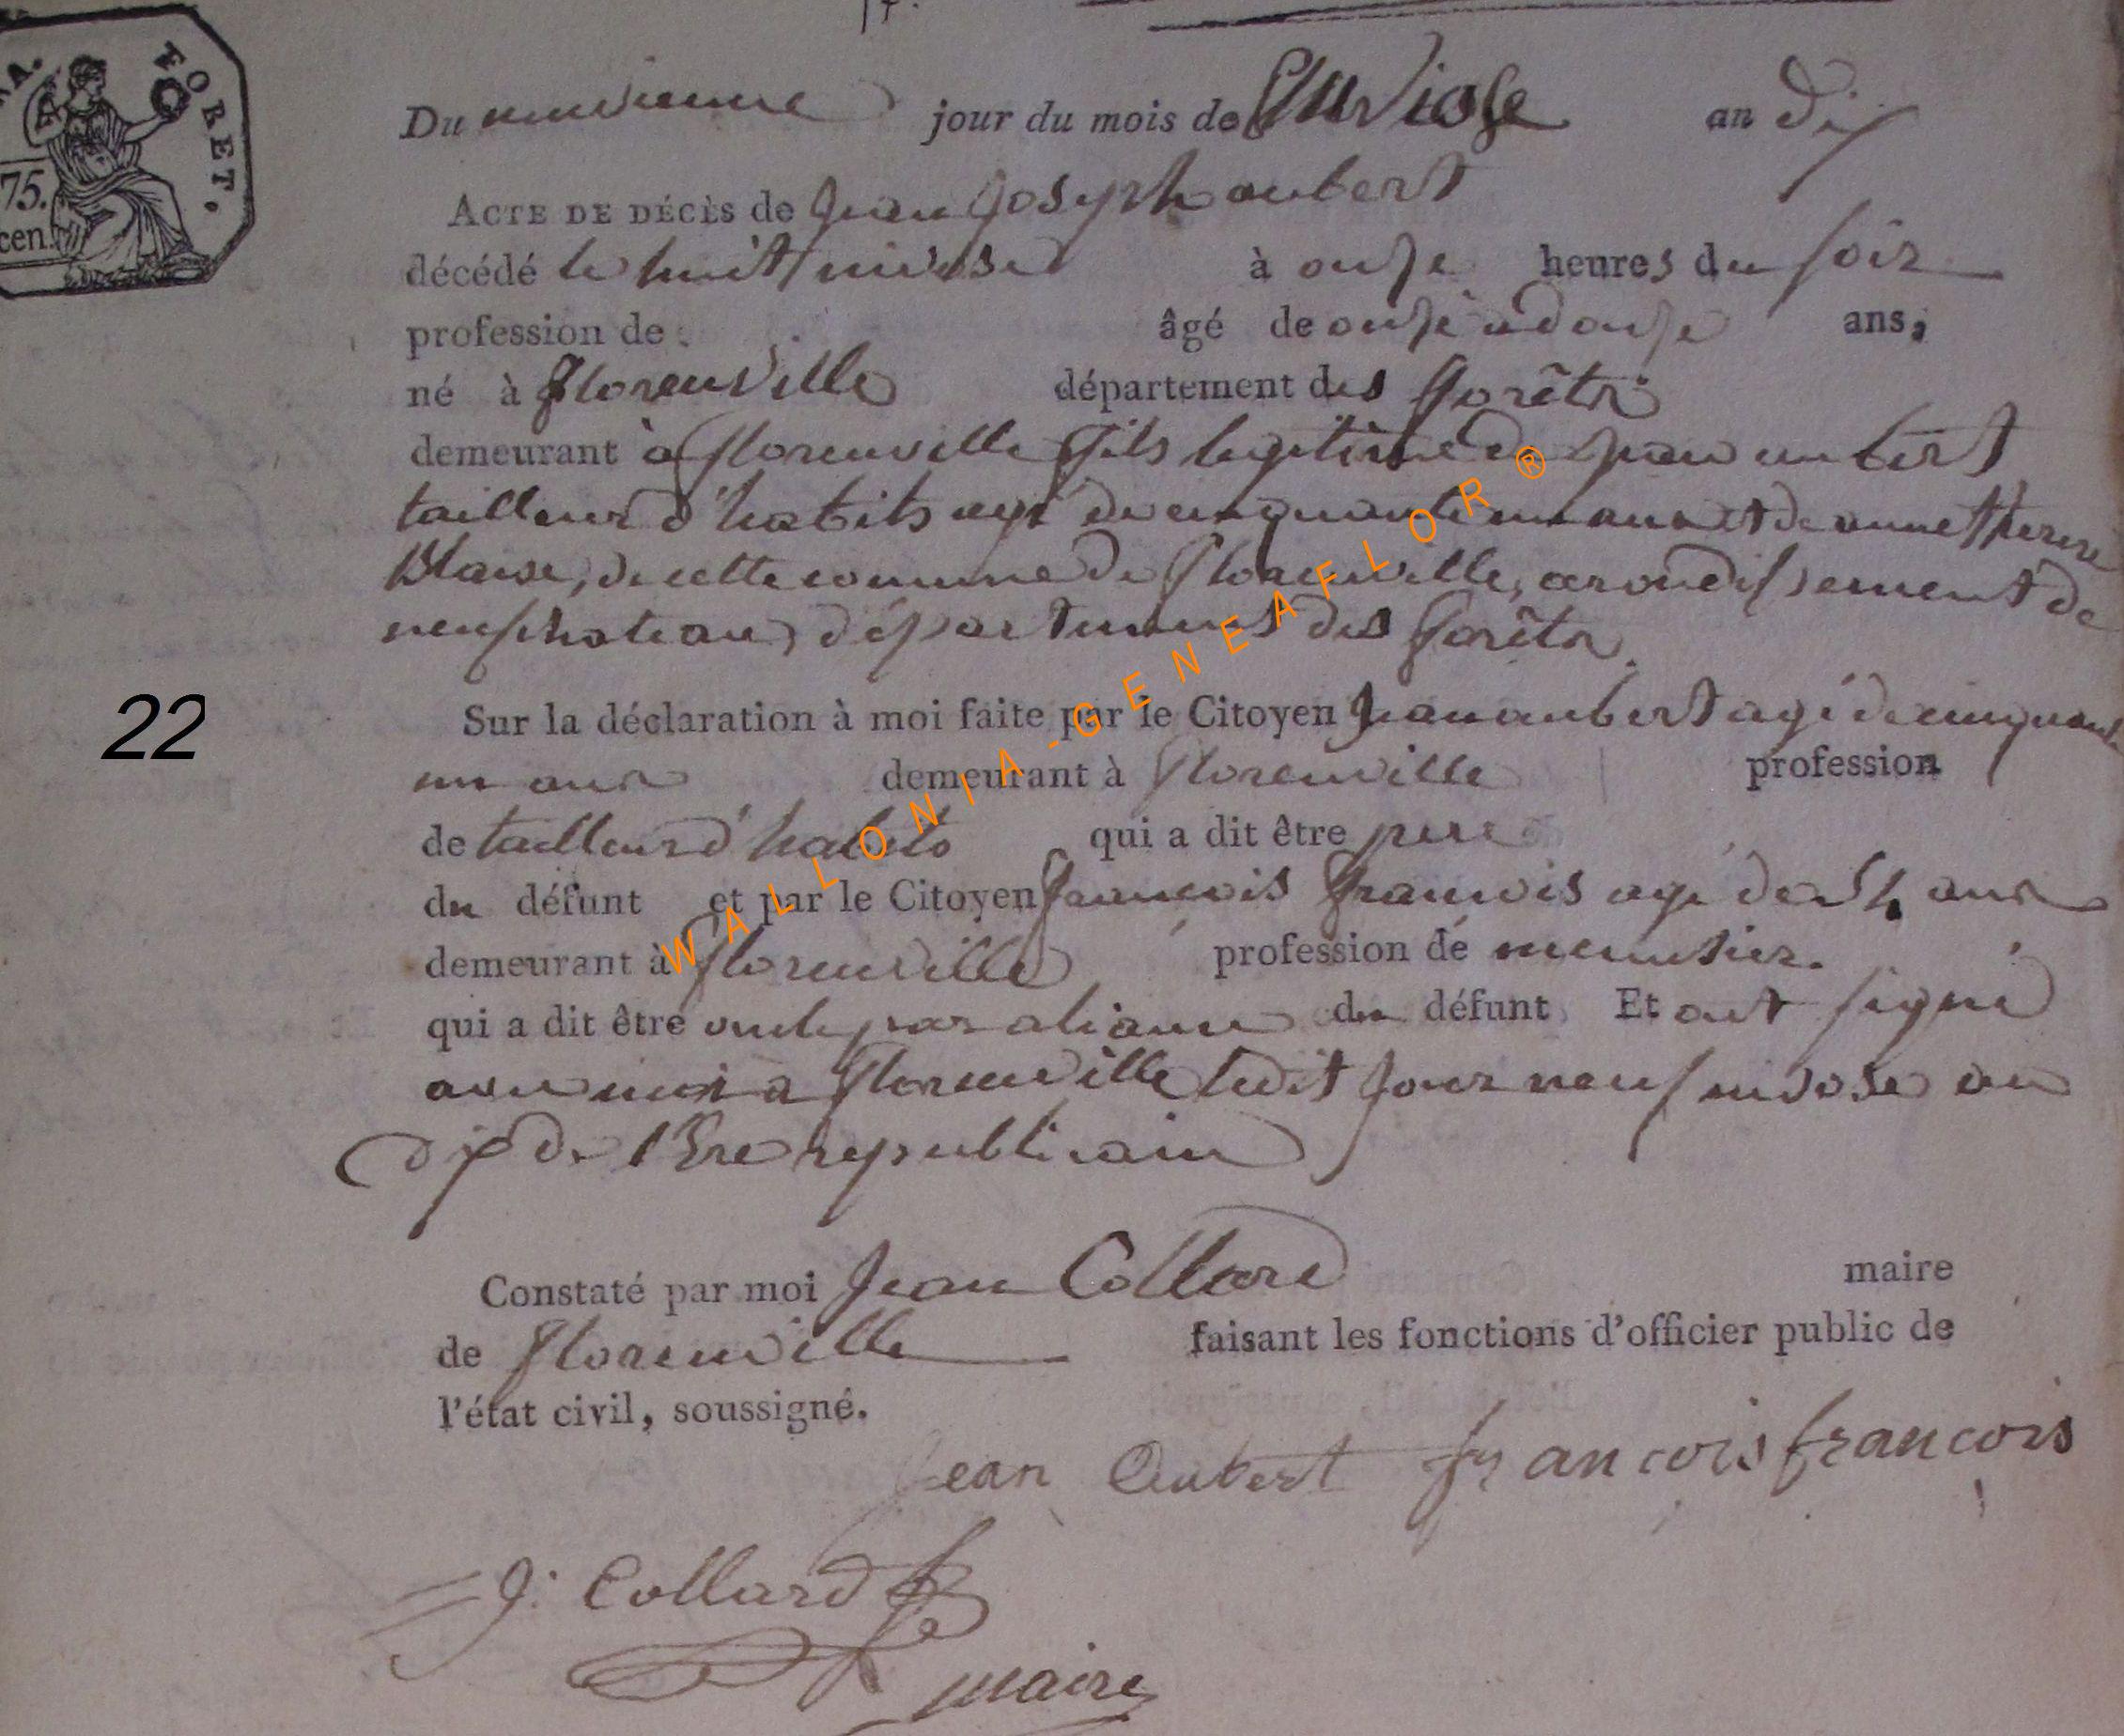 FORET.
75.
cen.
Du neuvieme jour du mois de Pluviose an dix
ACTE DE DÉCÈS de Jean Joseph aubert
décédé le huit nivose à onze heures du soir
profession de âgé de onze a douze ans,
né à florenville département des forêts
demeurant à florenville fils legitime de Jean aubert
tailleur d'habits agé de cinquante un ans et de anne therese
Blaise, de cette commune de florenville, arondissement de
neufchateau, département des forêts
22
Sur la déclaration à moi faite par le Citoyen Jean aubert agé de cinquante
un ans demeurant à florenville profession
de tailleur d'habits qui a dit être pere
du défunt et par le Citoyen francois francois agé de 54 ans
demeurant à florenville profession de menusier.
qui a dit être oncle par aliance du défunt Et ont signé
avec moi a florenville ledit jour neuf nivose an
dix de l'Ere republicain
Constaté par moi Jean Collard maire
de florenville faisant les fonctions d'officier public de
l'état civil, soussigné.
Jean Aubert francois francois
J. Collard
maire
WALLONIA-GENEAFLOR®